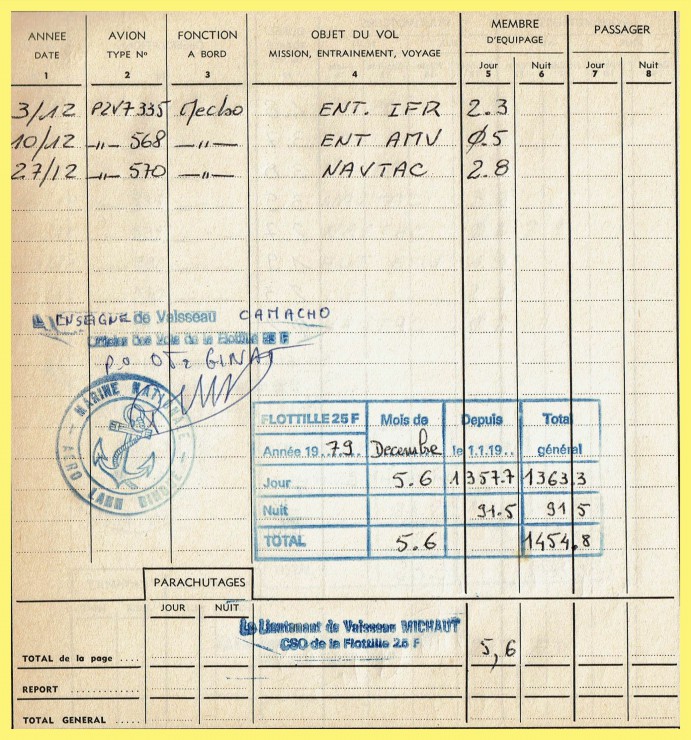 ANNEE DATE AVION TYPE Nº FONCTION A BORD OBJET DU VOL MISSION, ENTRAINEMENT, VOYAGE MEMBRE D'EQUIPAGE PASSAGER
Jour Nuit Jour Nuit
1 2 3 4 5 6 7 8
3/12 P2V7 335 Mecbo ENT. IFR 2.3
10/12 -"- 568 -"- ENT AMV Ø.5
27/12 -"- 570 -"- NAVTAC 2.8
L'ENSEIGNE de Vaisseau CAMACHO
Officier des Vols de la Flottille 25 F
P.O OTZ GINAT
MARINE NATIONALE
AERO LANN BIHOUE
FLOTTILLE 25 F Mois de Depuis Total
Année 19..79.. Decembre le 1.1.19.. général
Jour 5.6 1357.7 1363.3
Nuit 91.5 91 5
TOTAL 5.6 1454.8
PARACHUTAGES
JOUR NUIT
Le Lieutenant de Vaisseau MICHAUT
CSO de la Flottille 25 F
TOTAL de la page .... 5,6
REPORT ................
TOTAL GENERAL ......